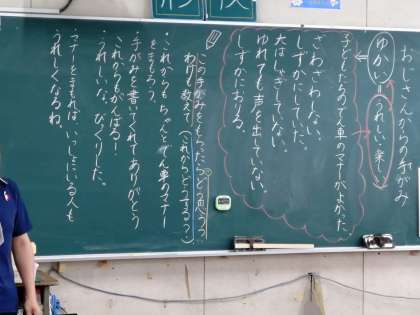 おじさんからの手がみ
ゆかい
うれしい楽しい
子どもたちのでん車のマナーがよかった
さわざわしない。
しずかにしていた。
大はしゃぎしていない。
ゆれても声を出していない。
しずかにおりる。
この手がみをもらったらどう思うか
わけも教えて。(これからどうする?)
・これからも、ちゃんとでん車のマナー
をまもろう。
・手がみを書いてくれてありがとう
これからもがんばる!
・うれしいな。びっくりした。
・マナーをまもれば、いっしょにいる人も
うれしくなるね。